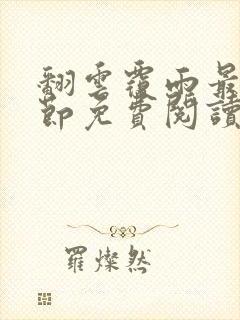 翻雲覆雨最
節免費閱讀
羅燦然